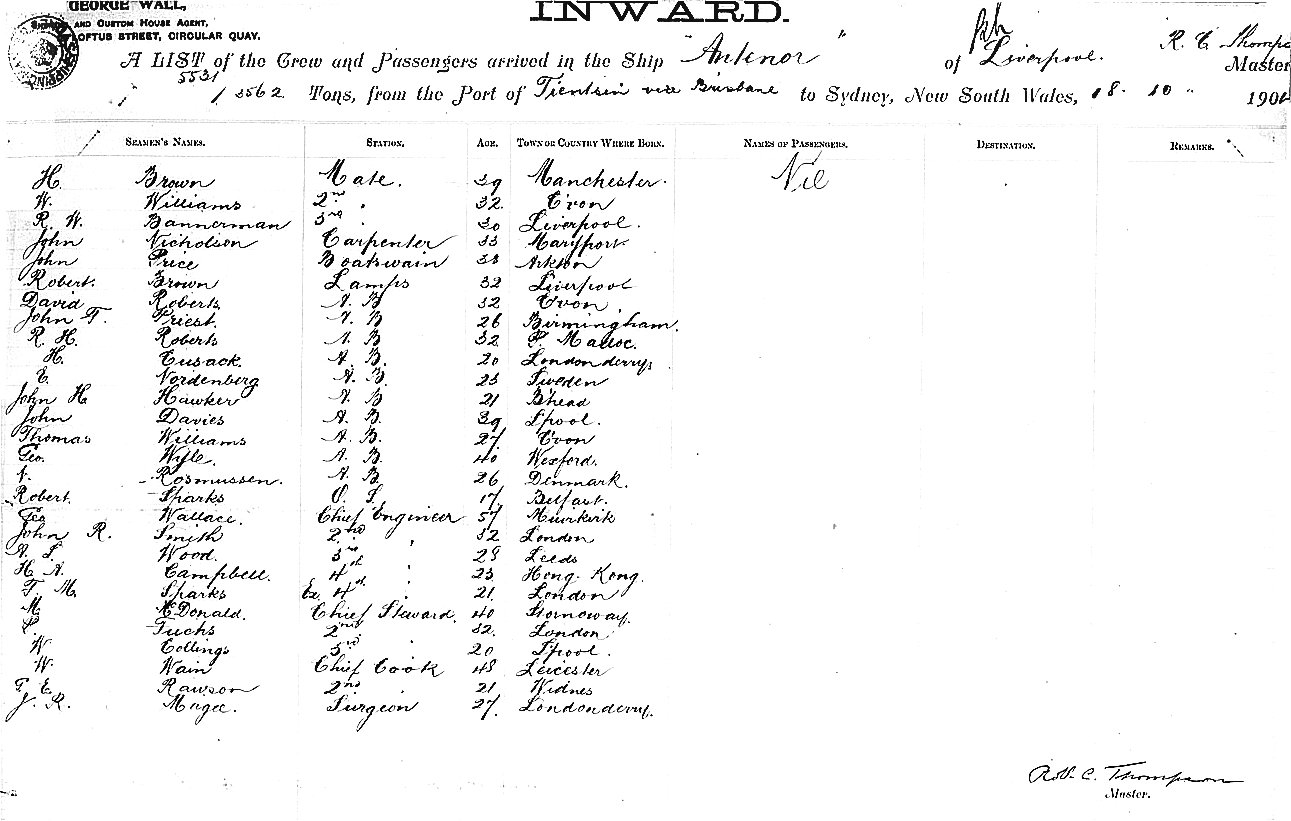 GEORGE WALL,
AND CUSTOM HOUSE AGENT,
LOFTUS STREET, CIRCULAR QUAY.
INWARD.
A LIST of the Crew and Passengers arrived in the Ship "Antenor" of Liverpool. R. C. Thomps Master
5531 / 3562 Tons, from the Port of Tientsin via Brisbane to Sydney, New South Wales, 18 10 190
SEAMEN'S NAMES. STATION. AGE. TOWN OR COUNTRY WHERE BORN. NAMES OF PASSENGERS. DESTINATION. REMARKS.
H. Brown Mate. 39 Manchester. Nil
W. Williams 2nd " 32 C'von
R. W. Bannerman 3rd " 30 Liverpool.
John Nicholson Carpenter 33 Maryport
John Price Boatswain 38
Robert. Brown Lamps 32 Liverpool
David Roberts A. B 32 C'von.
John T. Priest. A. B 26 Birmingham.
R. H. Roberts A. B 32 P. Madoc.
H. Cusack. A. B. 20 Londonderry.
E. Nordenberg A. B. 23 Sweden
John H Hawker A. B 21 B'head
John Davies A. B. 39 L'pool.
Thomas Williams A. B. 27 C'von
Geo. Wyle. A. B. 40 Wexford.
N. Rosmussen. A. B. 26 Denmark.
Robert. Sparks O. S. 17 Belfast.
Geo Wallace. Chief Engineer 57 Muirkirk
John R. Smith 2nd " 32 London
A. L. Wood. 3rd 28 Leeds
H. A. Campbell. 4th " 23 Hong. Kong.
T. M. Sparks Ex. 4th " 21 London
M. McDonald. Chief Steward. 40 Stornoway.
Fuchs 2nd " 32. London
W Collings 3rd " 20 L'pool.
W. Wain Chief Cook 48 Leicester
T. E. Rawson 2nd " 21 Widnes
J. R. Magee. Surgeon 27. Londonderry.
Robt. C. Thompson
Master.